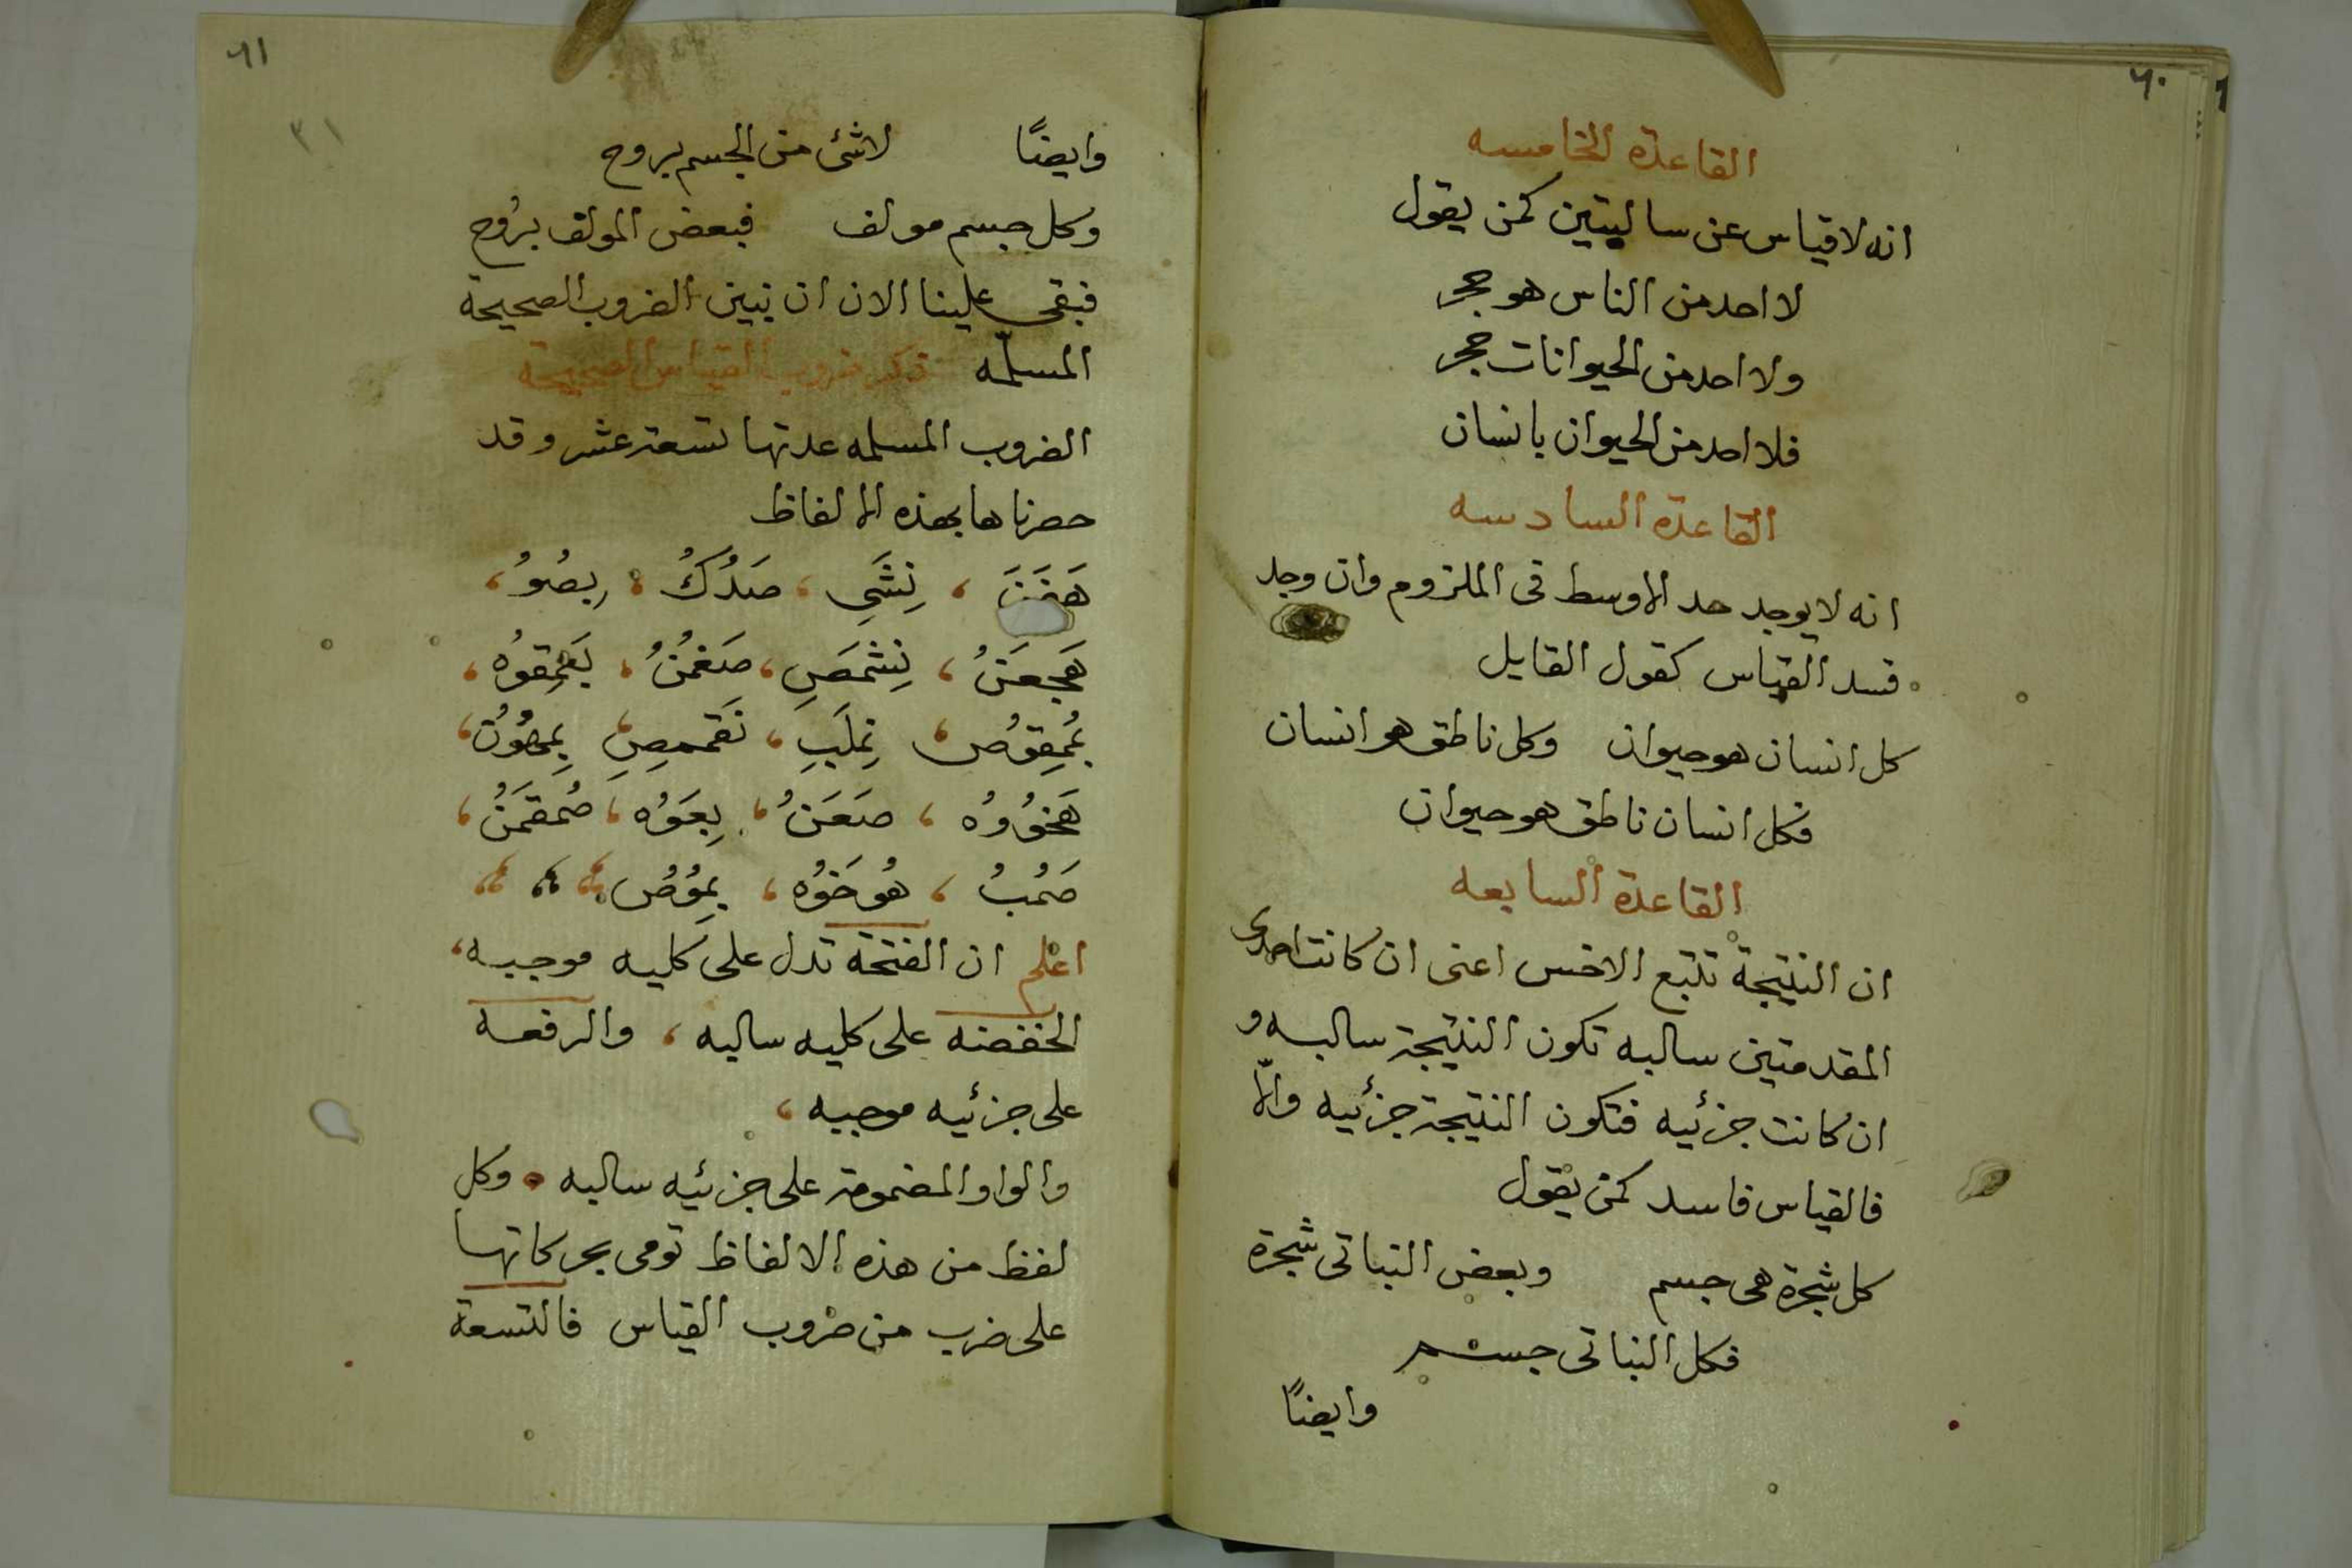 ٦٠
القاعدة الخامسه
انه لا قياس عن سالبتين كمن يقول
لا احد من الناس هو حجر
ولا احد من الحيوانات حجر
فلا احد من الحيوان بانسان
القاعدة السادسه
انه لا يوجد حد الاوسط فى الملزوم وان وجد
فسد القياس كقول القايل
كل انسان هو حيوان وكل ناطق هو انسان
فكل انسان ناطق هو حيوان
القاعدة السابعه
ان النتيجة تتبع الاخس اعنى ان كانت احدى
المقدمتين سالبه تكون النتيجة سالبه و
ان كانت جزئيه فتكون النتيجة جزئيه والّا
فالقياس فاسد كمن يقول
كل شجرة هى جسم وبعض النباتى شجرة
فكل النباتى جسم
وايضًا
٦١
٣١
وايضًا لاشئ من الجسم بروح
وكل جسم مولف فبعض المولف بروح
فبقى علينا الان ان نبين الضروب الصحيحة
المسلمّه ذكر ضروب القياس الصحيحة
الضروب المسلمه عدتها تسعة عشر وقد
حصرناها بهذه الالفاظ
نِشَىِ ، صَدُكُ ، رِبصُوُ ،
هَجعَنُ ، نِشمَصِ ، صَغمُنُ ،
نِملَبِ ، نَقمِصِ
صَعَنُ ، بِعَوُه ، صُمقمَنُ ،
صَمُبُ ، هُوخَوُه ، بِموُصُ
اعلم ان الفتحة تدل على كليه موجبه ،
الخفضه على كليه سالبه ، والرفعه
على جزئيه موجبه ،
والواو المضمومة على جزئيه سالبه • وكل
لفظ من هذه الالفاظ تومى بحركاتها
على ضرب من ضروب القياس فالتسعة